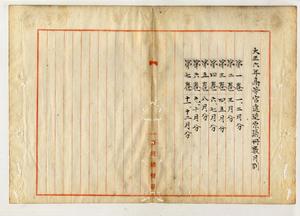 大正六年高等官進退原議冊数月別
第一巻 一、二月分
第二巻 三月分
第三巻 四、五月分
第四巻 六、七月分
第五巻 八月分
第六巻 九、十月分
第七巻 十一、十二月分